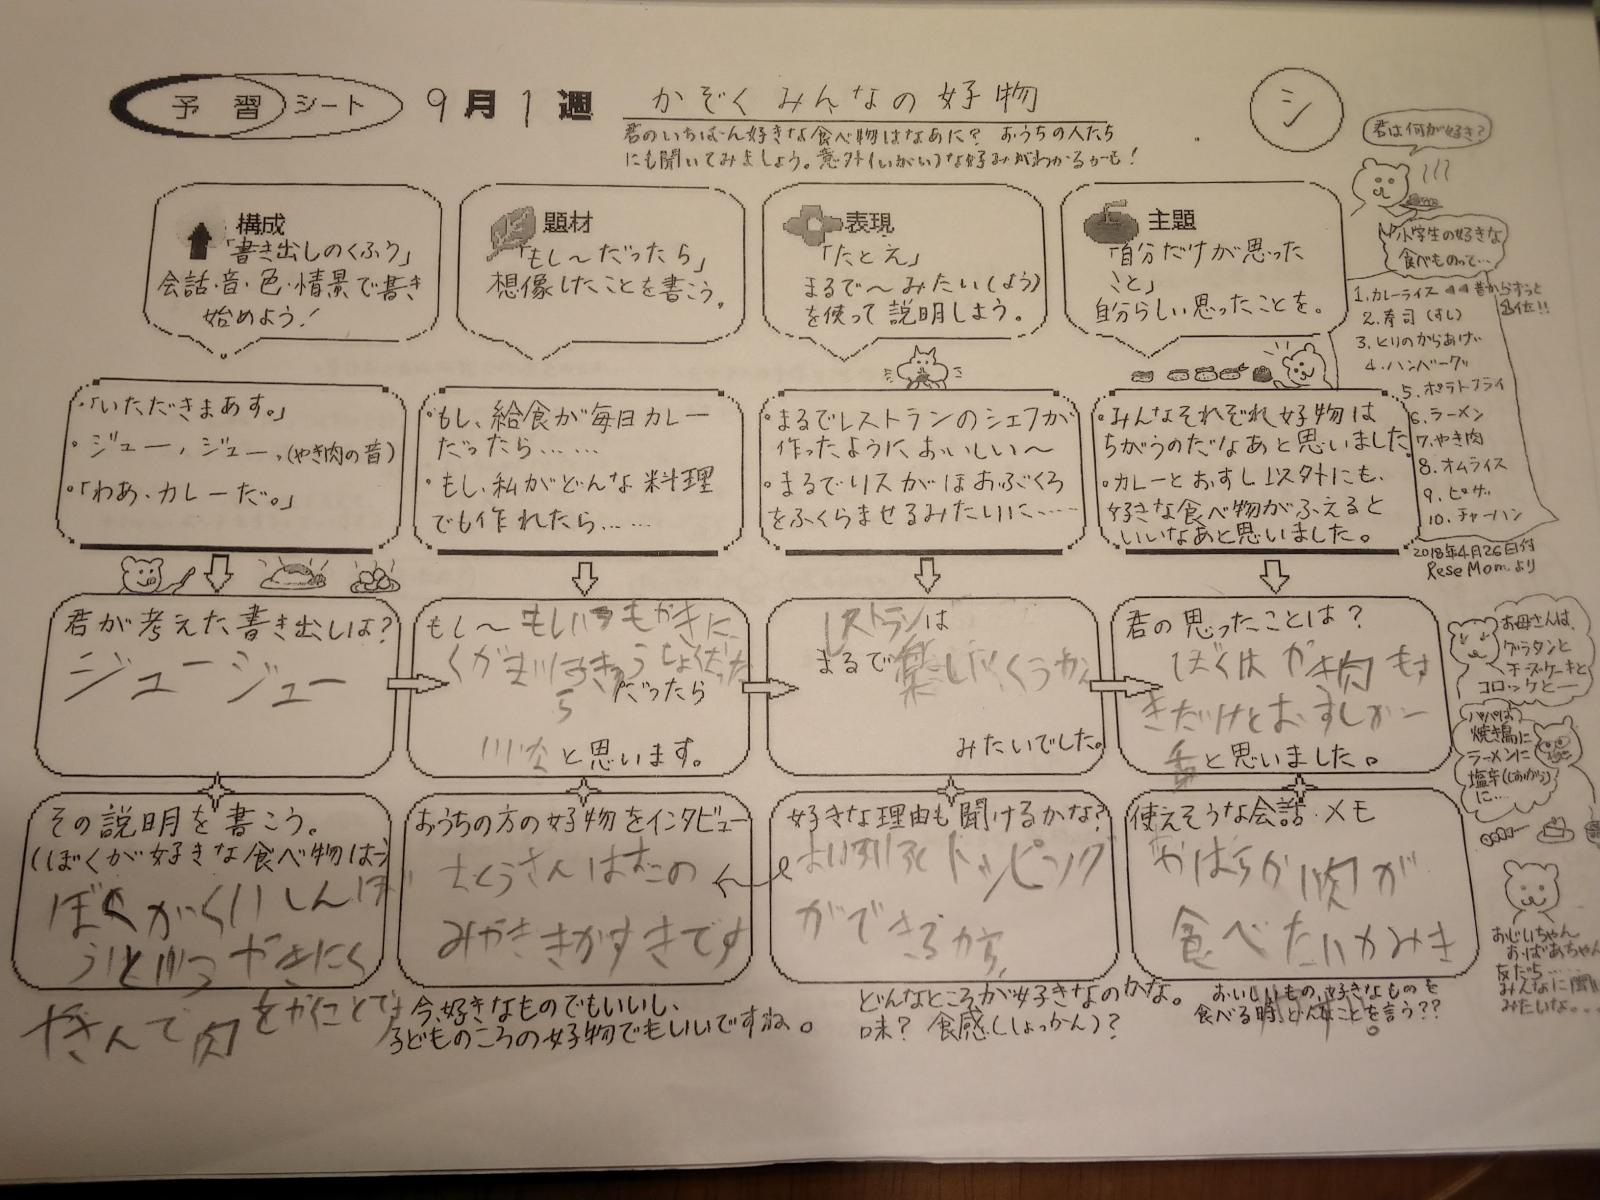 予習シート 9月1週 かぞくみんなの好物
シ
君のいちばん好きな食べ物はなあに？ おうちの人たち
にも聞いてみましょう。意外(いがい)な好みがわかるかも！
君は何が好き？
構成
「書き出しのくふう」
会話・音・色・情景で書き
始めよう！
題材
「もし〜だったら」
想像したことを書こう。
表現
「たとえ」
まるで〜みたい(よう)
を使って説明しよう。
主題
「自分だけが思った
こと」
自分らしい思ったことを。
小学生の好きな
食べものって…
1.カレーライス 昔からずっと
1位!!
2.寿司(すし)
3.とりのからあげ
4.ハンバーグ
5.ポテトフライ
6.ラーメン
7.やき肉
8.オムライス
9.ピザ
10.チャーハン
2018年4月26日付
ReseMomより
・「いただきまあす。」
・ジュー、ジュー。(やき肉の音)
・「わあ、カレーだ。」
・もし、給食が毎日カレー
だったら……
・もし、私がどんな料理
でも作れたら……
・まるでレストランのシェフが
作ったようにおいしい〜
・まるでリスがほおぶくろ
をふくらませるみたいに……
・みんなそれぞれ好物は
ちがうのだなあと思いました。
・カレーとおすし以外にも、
好きな食べ物がふえると
いいなあと思いました。
君が考えた書き出しは？
ジュージュー
もし〜
だったら
と思います。
レストランは
まるで楽し
みたいでした。
君の思ったことは？
ぼくは
きだけとおすしが一
番と思いました。
お母さんは、
グラタンと
チーズケーキと
コロッケと—
パパは
焼き鳥に
ラーメンに
塩辛(しおから)
に…
その説明を書こう。
(ぼくが好きな食べ物は〜)
ぼくがくいしんぼ
やきにく
おうちの方の好物をインタビュー
さんはおこの
みやききがすきです
好きな理由も聞けるかな？
トッピング
ができるから、
使えそうな会話・メモ
肉が
食べたい
今、好きなものでもいいし、
子どものころの好物でもいいですね。
どんなところが好きなのかな。
味？ 食感(しょっかん)？
おいしいもの、好きなものを
食べる時、どんなことを言う？？
おじいちゃん
おばあちゃん
友だち……
みんなに聞
みたいな…